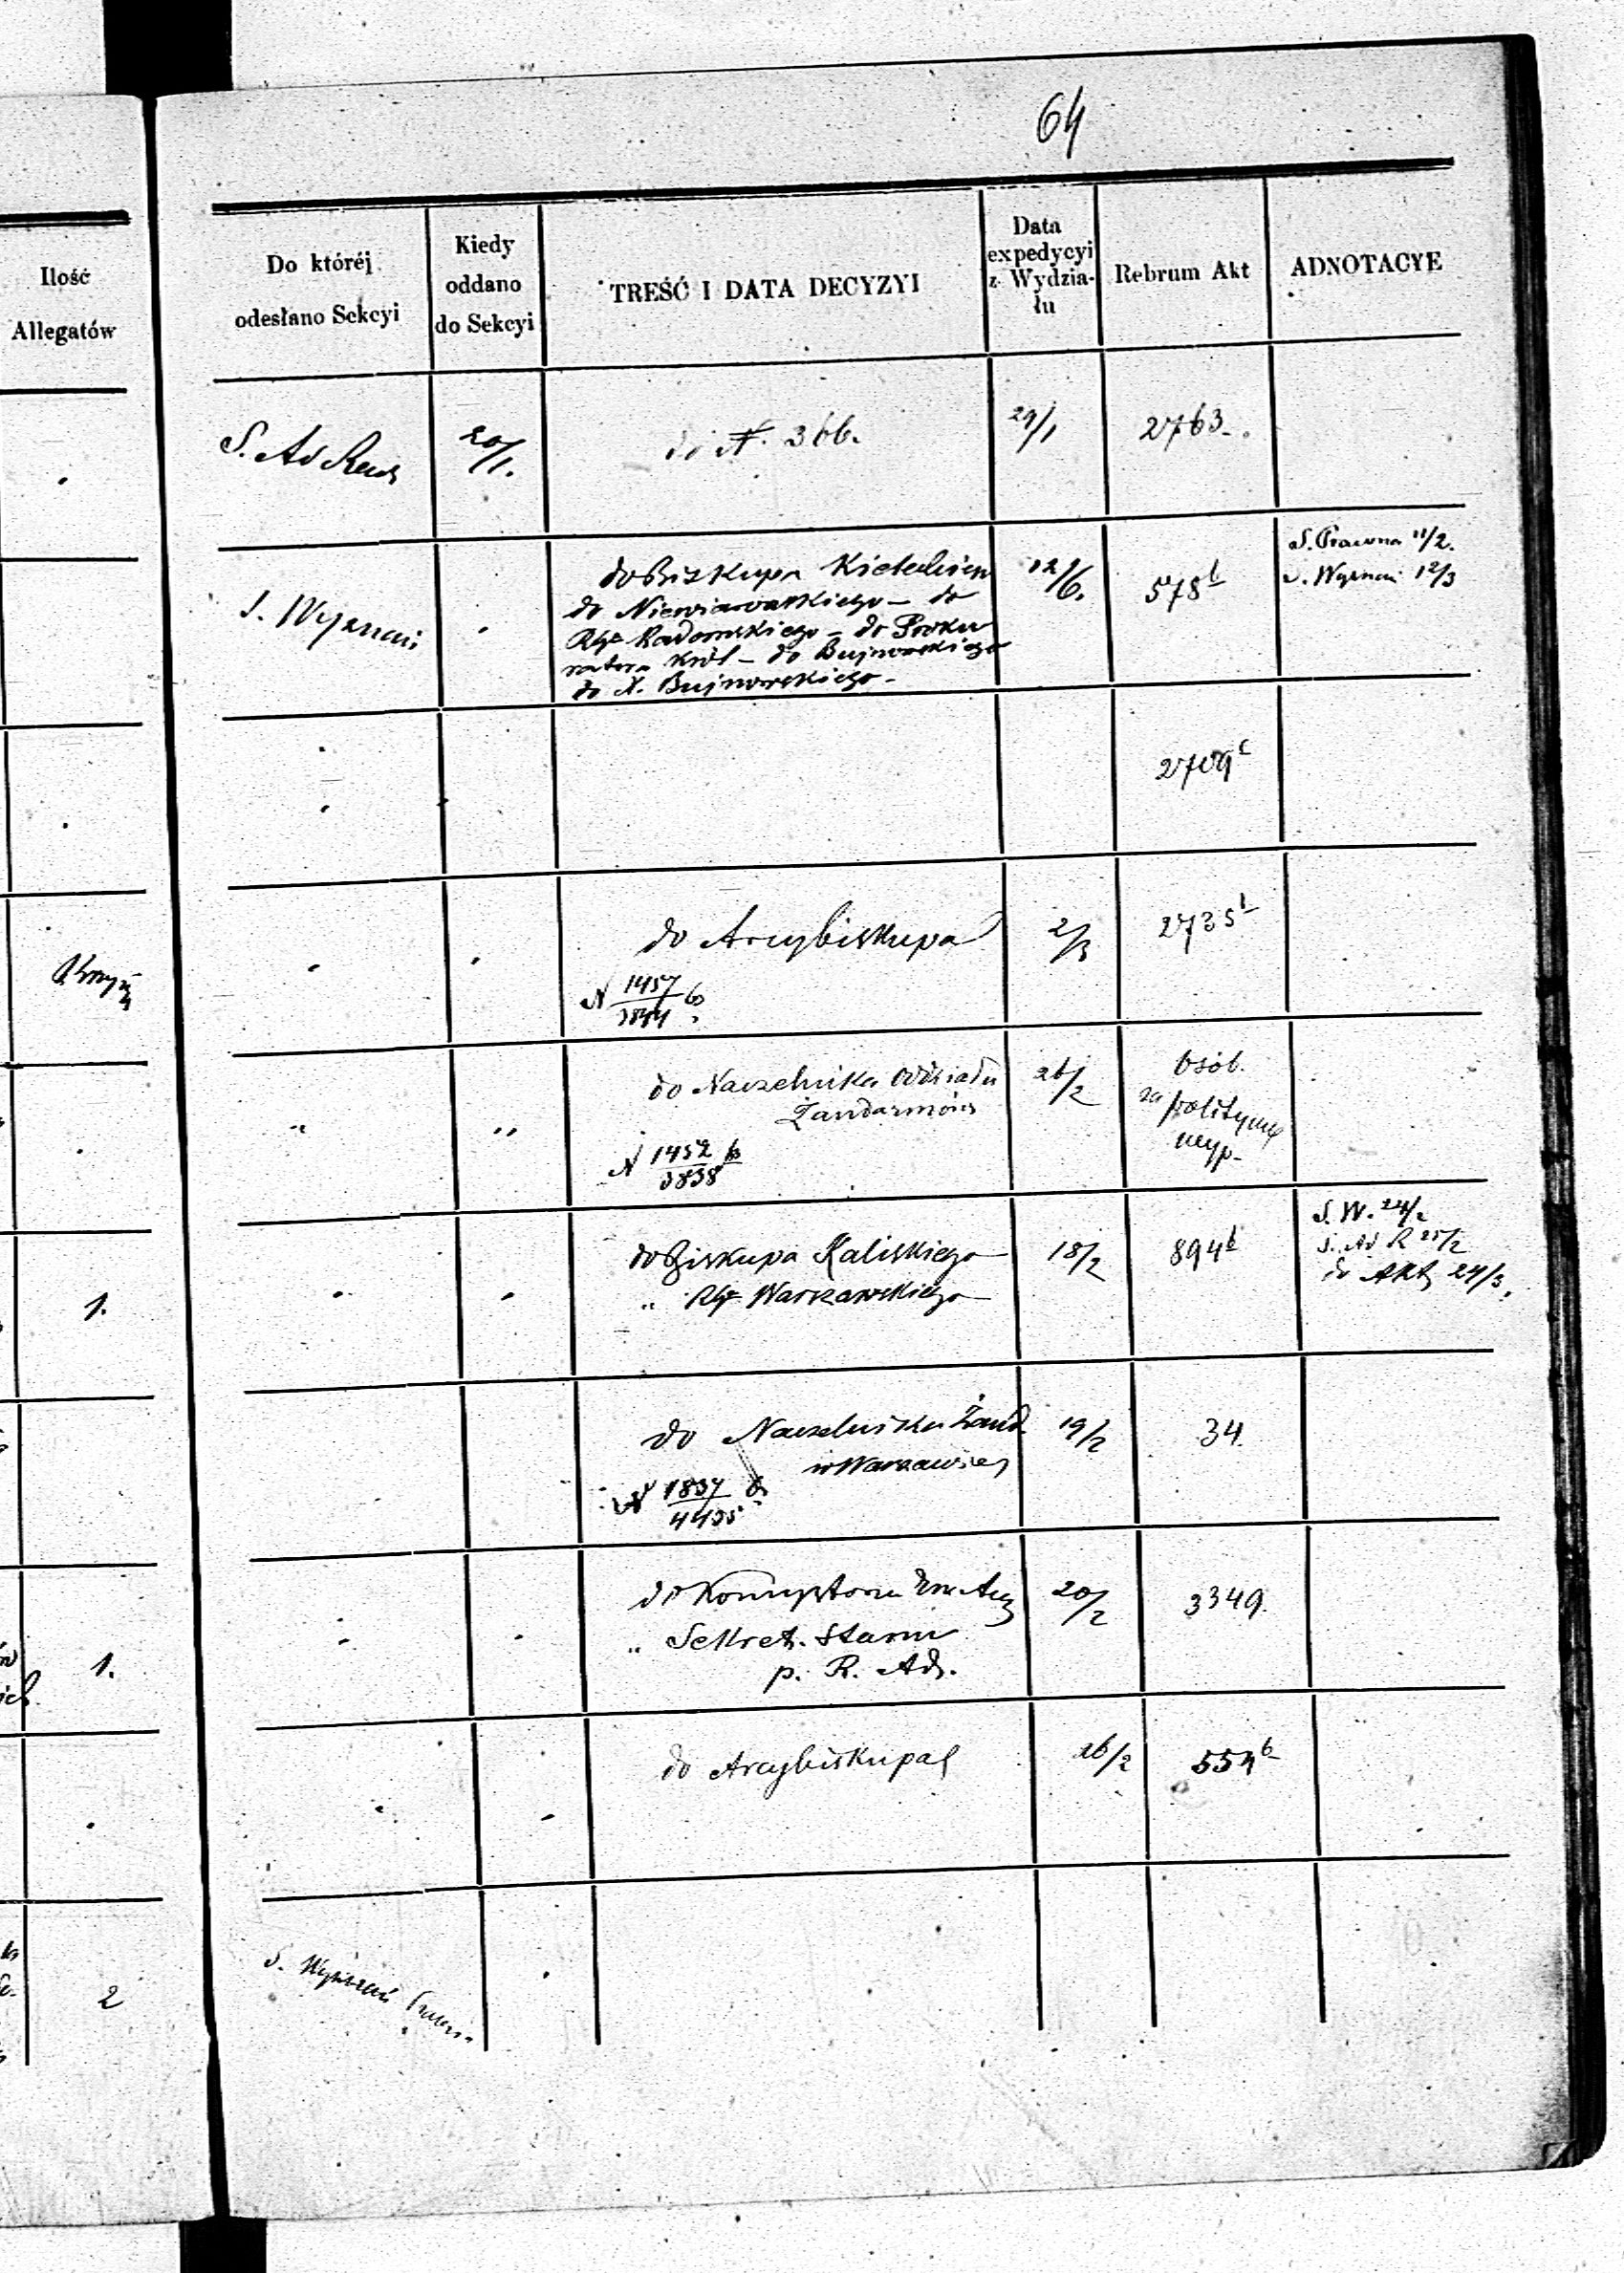 64
Ilość
Allegatów
Do któréj
odesłano Sekcyi
Kiedy
oddano
do Sekcyi
TREŚĆ I DATA DECYZYI
Data
expedycyi
z Wydzia-
łu
Rebrum Akt
ADNOTACYE
S. Ad
20/1.
do N. 366.
29/1
2763.
S. Wyznań
do Biskupa
do Niewiarowskiego - do
Radomskiego - do Proku
ratora Król - do Bujnowskiego
do X. Bujnowskiego -
12/6.
578 b
S. Prawna 11/2.
S. Wyznań 12/3
2709 c
do Arcybiskupa
N 1457/3844
2/3
2735 b
do Naczelnika Oddziału
Żandarmów
N 1452/3838
26/2
osób.
za polityczne
1.
do Biskupa Kaliskiego
" Warszawskiego
18/2
894 b
S. W. 24/2
S. Ad R 25/2
do Akt 24/3.
do Naczelnika Żand.
w Warszawie
N 1837/4435
19/2
34.
1.
do
" Sekret. Stanu
p. R. Ad.
20/2
3349.
do Arcybiskupa
26/2
554 b
2
S. Wyznań